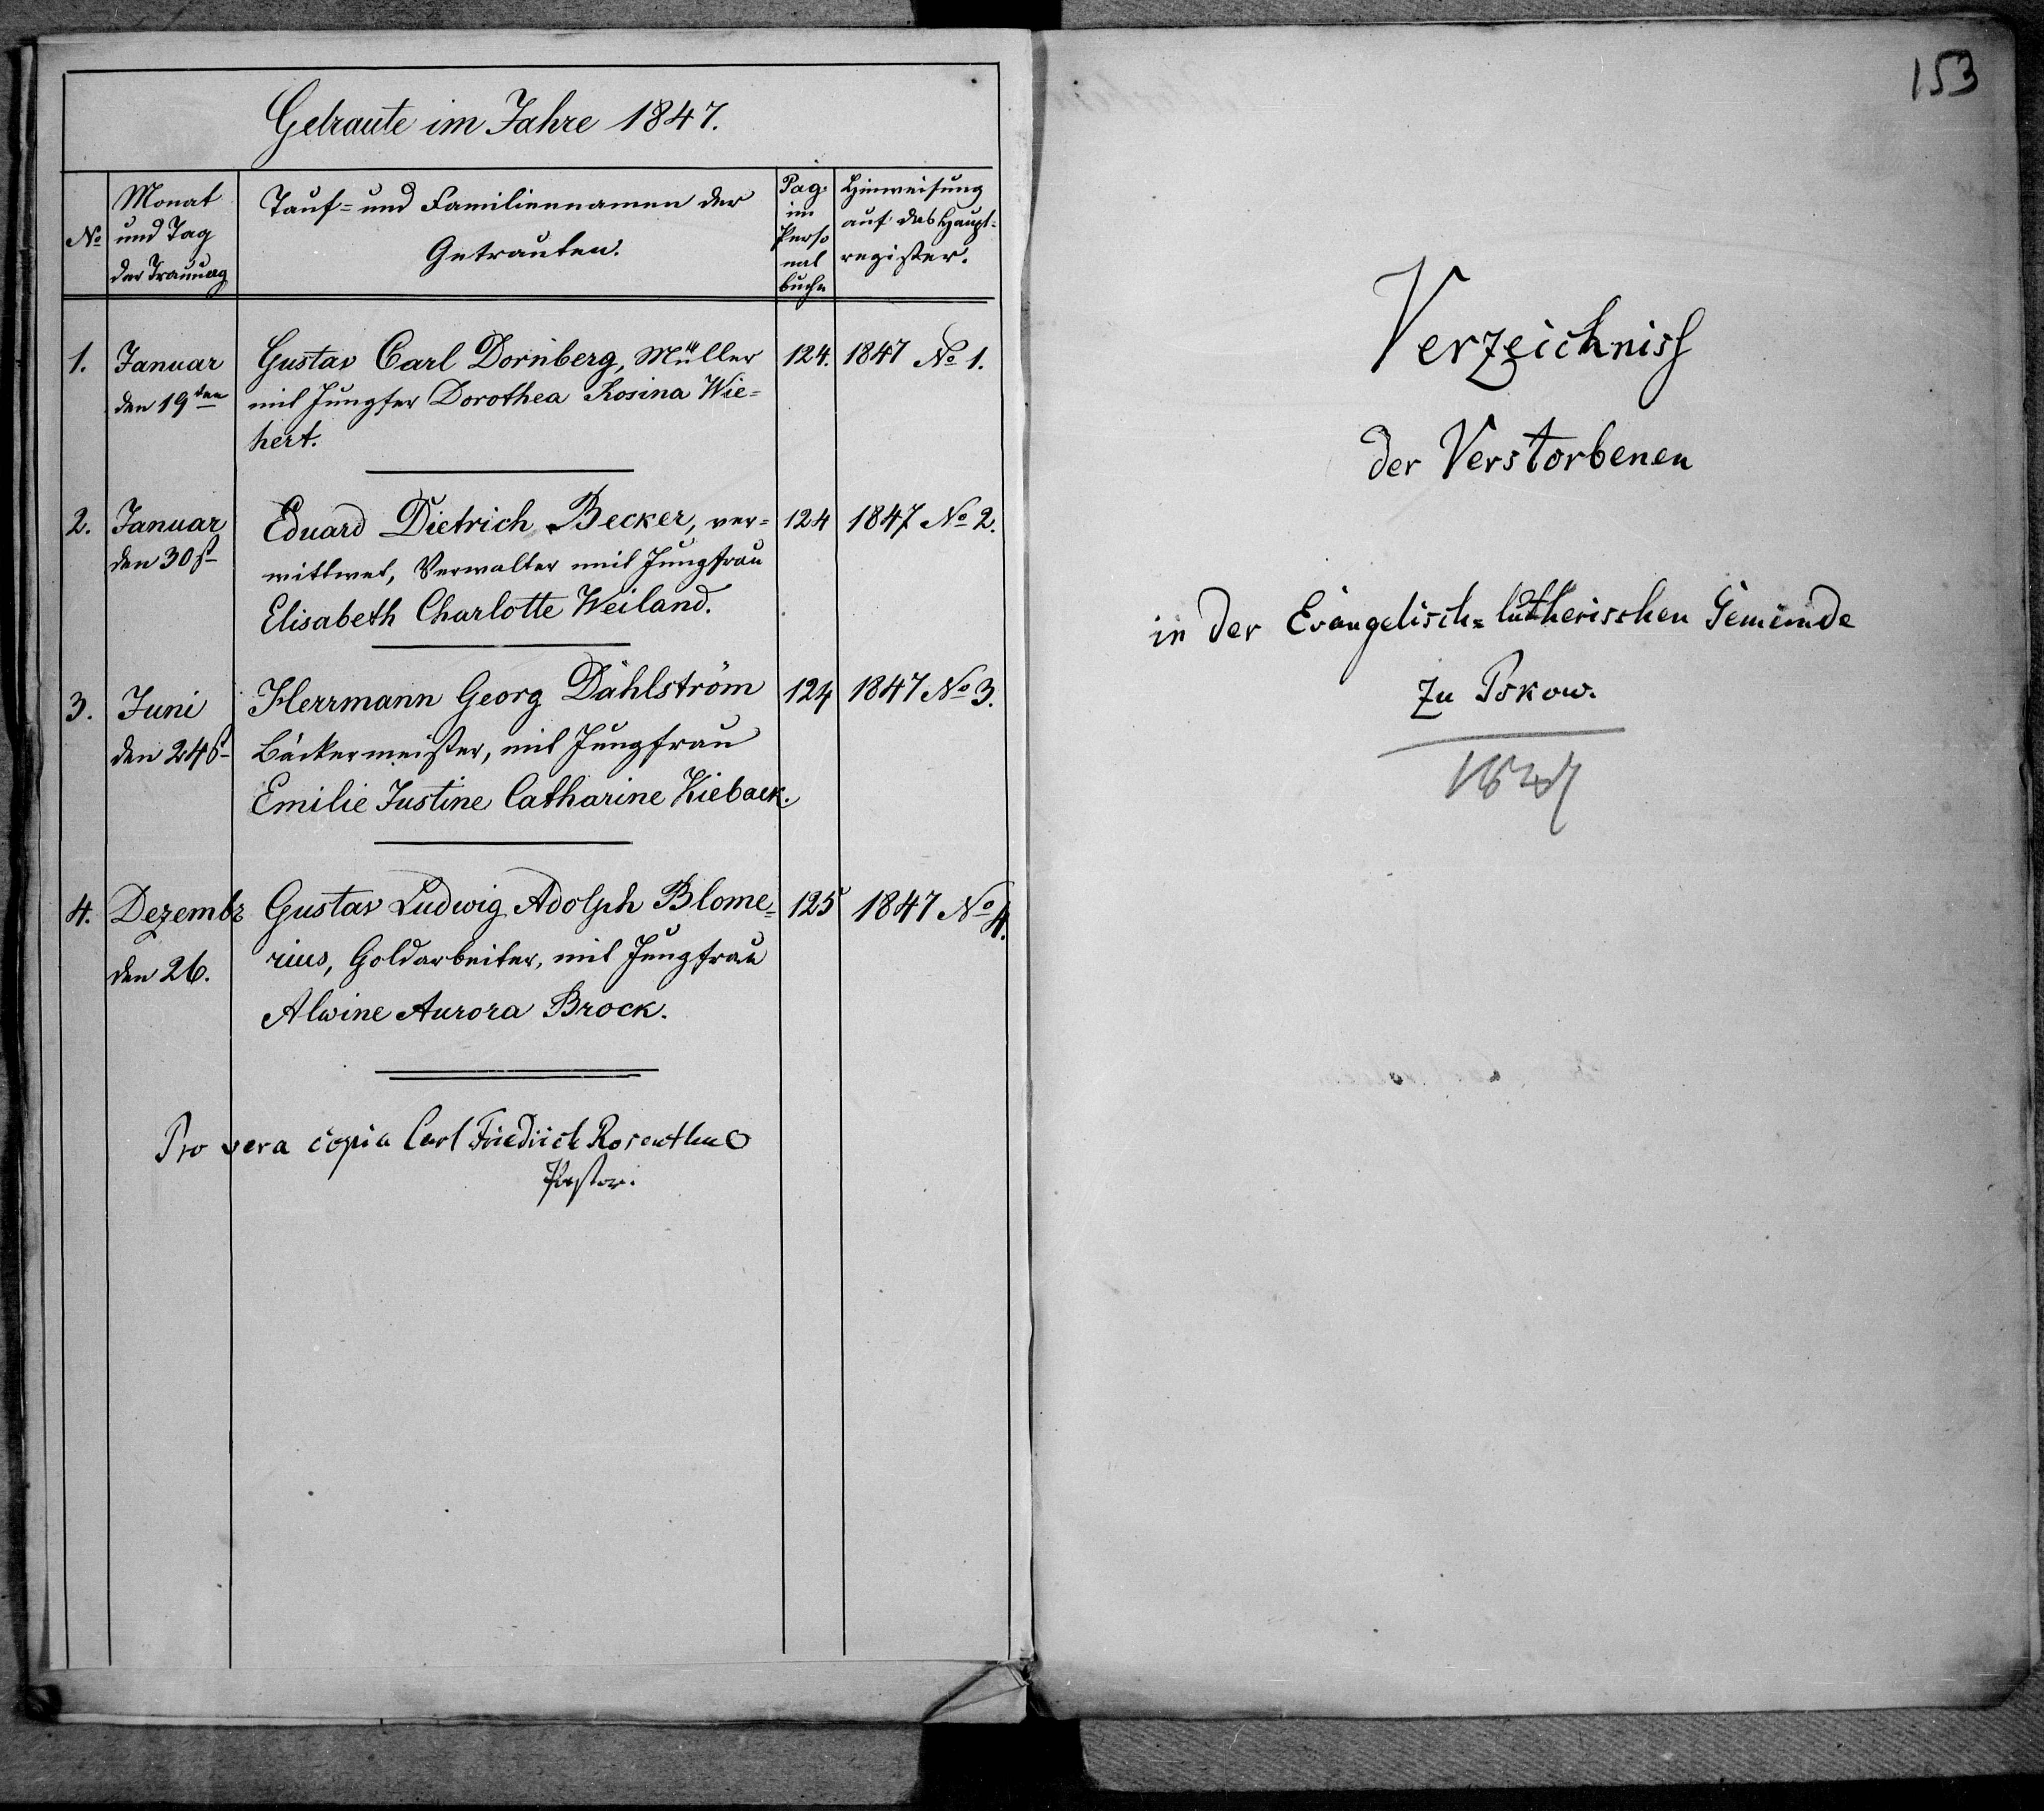 Getraute im Jahre 1847.
No
Monat
und Tag
der Trauung
Tauf= und Familiennamen der
Getrauten.
Pag.
im
Perso
nal
buche
Hinweisung
auf das Haupt=
register.
1. Januar Gustav Carl Dornberg, Müller 124. 1847 No 1.
den 19ten mit Jungfer Dorothea Rosina Wie=
hert.
2. Januar Eduard Dietrich Becker, ver= 124 1847 No 2.
den 30st wittwet, Verwalter mit Jungfrau
Elisabeth Charlotte Weiland.
3. Juni Herrmann Georg Dahlström 124 1847 No 3.
den 24st Bäckermeister, mit Jungfrau
Emilie Justine Catharine Kieback.
4. Dezembr Gustav Ludwig Adolph Blome= 125 1847 No 4.
den 26. rius, Goldarbeiter, mit Jungfrau
Alwine Aurora Brock.
Pro vera copia Carl Friedrich Rosenthal
Pastor.
153
Verzeichniss
der Verstorbenen
in der Evangelisch=lutherischen Gemeinde
zu Pskow.
1847